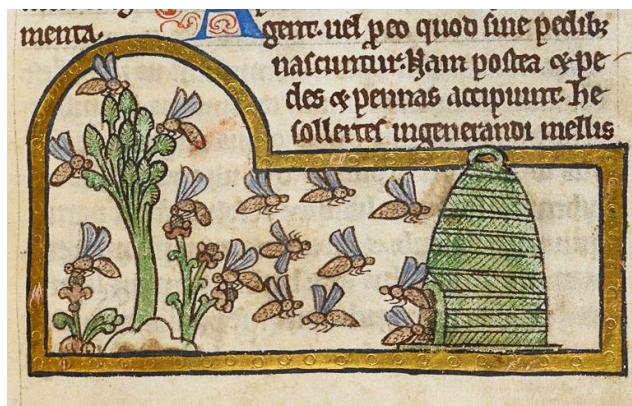 menta.
Agent. uel ꝑeo quod sine pedibꝫ
nascuntur. Nam postea & pe-
des & pennas accipiunt. he
sollertes ingenerandi mellis